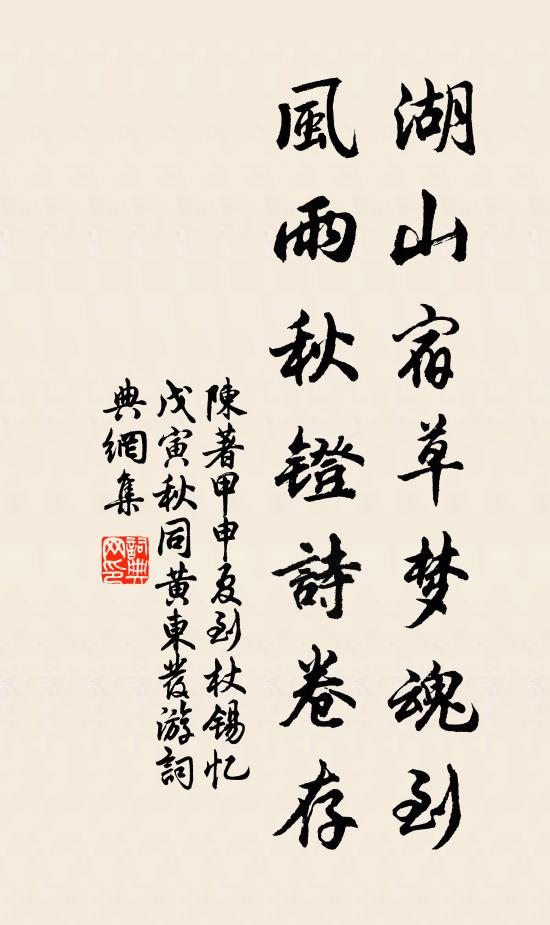 湖山宿草梦魂到
風雨秋鐙詩卷存
陳著甲申夏到杖锡忆
戊寅秋同黄東發游詞
典網集
詞典網印